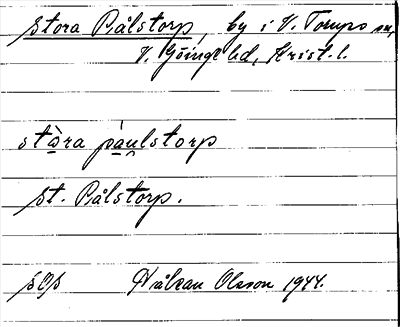 Stora Pålstorp, by i V. Torups sn,
V. Göinge hd, Krist. l.
stòra pàulstorp
St. Pålstorp.
Håkan Olsson 1944.